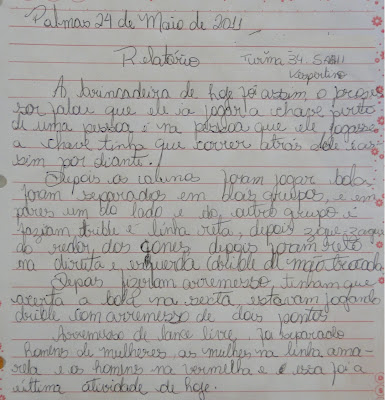 Palmas 24 de Maio de 2011
Relatório Turma 34.5
Vespertino
A brincadeira de hoje foi assim o profes
sor falou que ele ia jogar a chave perto
di uma pessoa e na pessoa que ele jogasse
a chave tinha que correr atrás dele i as
sim por diante.
Depois os alunos foram jogar bola,
foram separados em dois grupos, e em
pares um do lado e do outro grupo e
faziam, drible e linha reta, depois zigue-zague
do redor dos cones depois foram reto
na direita e esquerda (drible di mão trocada
Depois fizeram arremesso, tinham que
acerta a bola na sexta, estavam jogando
drible com arremesso de dois pontos
Arremesso de lance livre, foi separado
homens de mulheres as mulhes na linha ama-
rela e os homens na vermelha e essa foi a
última atividade de hoje.